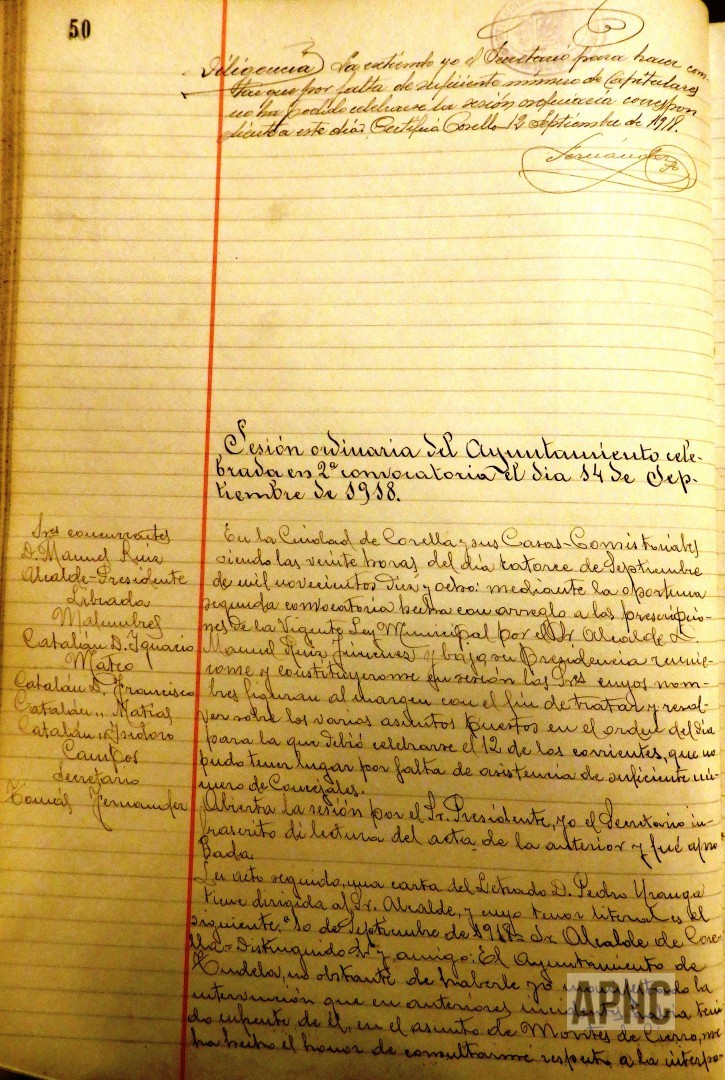 50
Diligencia La extiendo yo el Secretario para hacer cons
tar que por falta de suficiente número de Capitulares
no ha podido celebrarse la sesión ordinaria correspon
diente a este día. Certifico Corella 12 Septiembre de 1918.
Fernández
Sesión ordinaria del Ayuntamiento cele-
brada en 2ª convocatoria el dia 14 de Sep-
tiembre de 1918.
Sres concurrentes
D. Manuel Ruiz
Alcalde-Presidente
Librada
Malumbres
Catalán D. Ignacio
Mateo
Catalán D. Francisco
Catalán " Matias
Catalán " Isidoro
Campos
Secretario
Tomás Fernandez
En la Ciudad de Corella y sus Casas-Comistoriales
siendo las veinte horas del día catorce de Septiembre
de mil novecientos diez y ocho: mediante la oportuna
segunda convocatoria hecha con arreglo a las prescripcio-
nes de la Vigente Ley Municipal por el Sr Alcalde D.
Manuel Ruiz Jimenez y bajo su Presidencia reunie-
ronse y constituyeronse en sesión los Sres cuyos nom-
bres figuran al margen con el fin de tratar y resol-
ver sobre los varios asuntos puestos en el orden del día
para la que debió celebrarse el 12 de los corrientes, que no
pudo tener lugar por falta de asistencia de suficiente nú-
mero de Concejales.
Abierta la sesión por el Sr. Presidente, yo el Secretario in-
frascrito di lectura del acta de la anterior y fué apro-
bada
Leí acto seguido, una carta del Letrado D. Pedro Uranga
tiene dirigida al Sr. Alcalde, y cuyo tenor literal es el
siguiente. "10 de Septiembre de 1918= Sr Alcalde de Core-
lla= Distinguido Sr y amigo: El Ayuntamiento de
Tudela, no obstante de haberle yo manifestado la
intervención que en anteriores había teni
do enfrente de él, en el asunto de Montes de Cierzo, me
ha hecho el honor de consultarme respecto a la interpo-
APNC